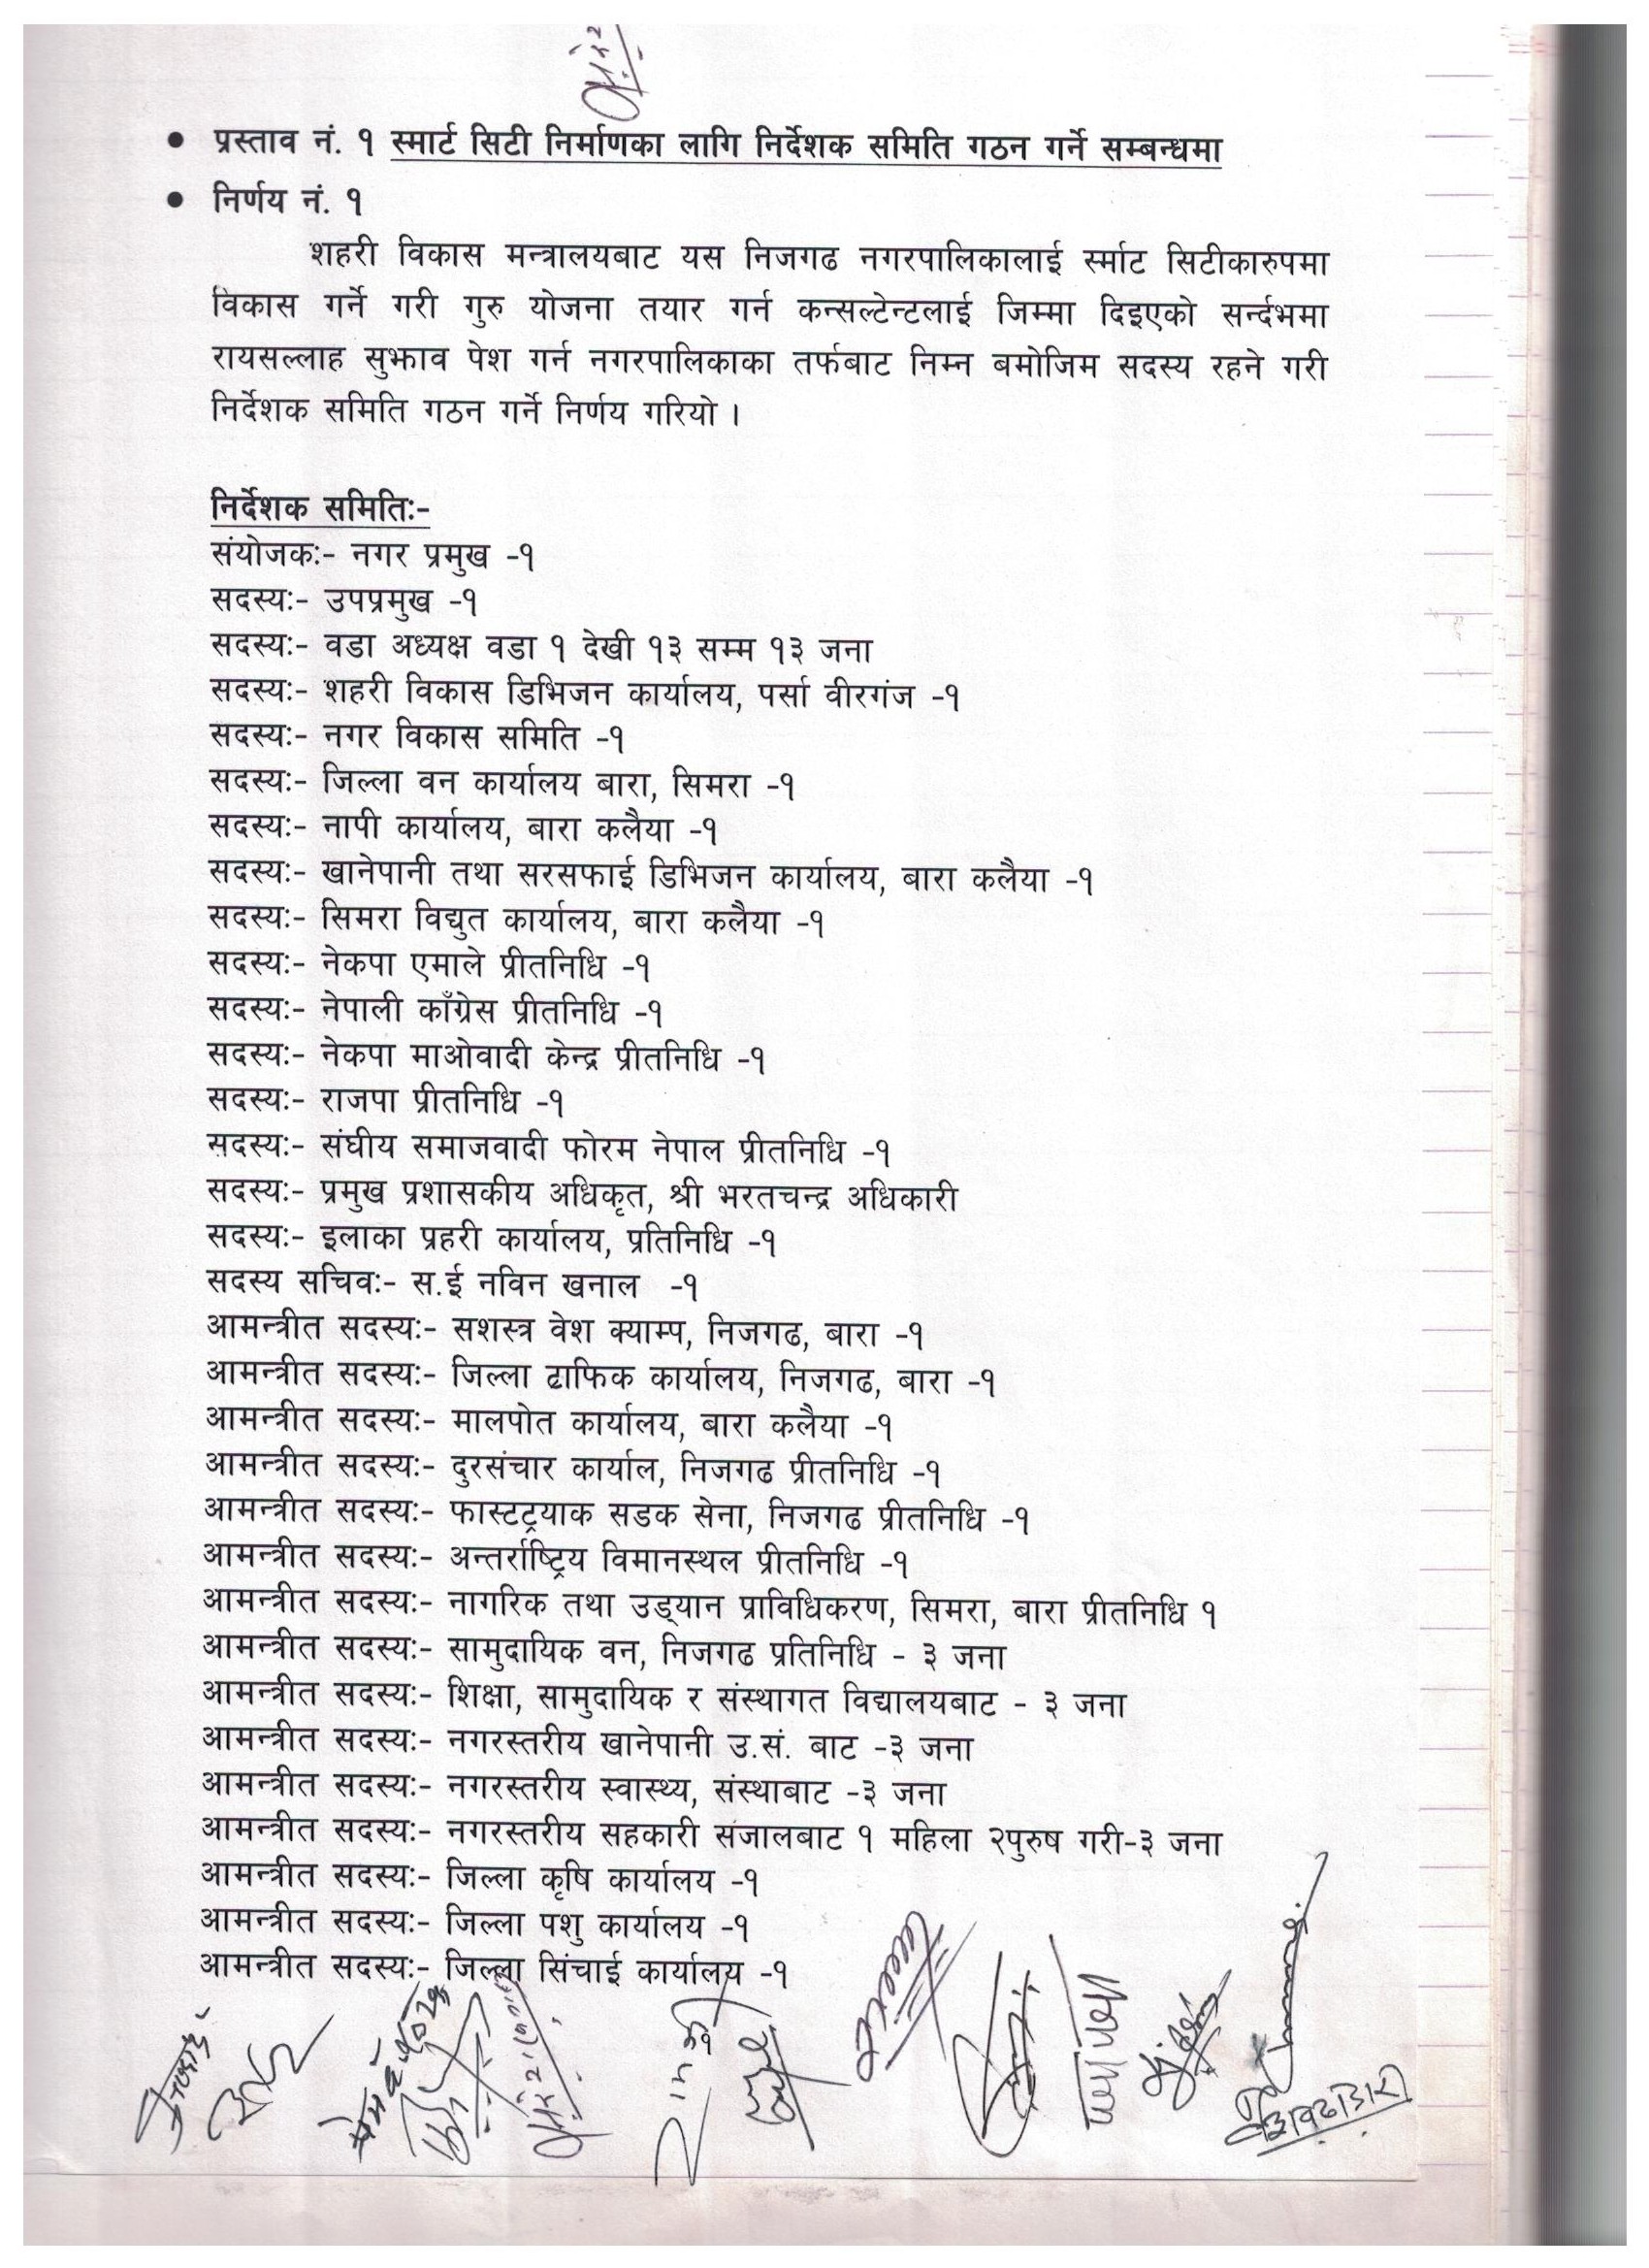 • प्रस्ताव नं. १ स्मार्ट सिटी निर्माणका लागि निर्देशक समिति गठन गर्ने सम्बन्धमा
• निर्णय नं. १
शहरी विकास मन्त्रालयबाट यस निजगढ नगरपालिकालाई र्स्माट सिटीकारुपमा
विकास गर्ने गरी गुरु योजना तयार गर्न कन्सल्टेन्टलाई जिम्मा दिइएको सर्न्दभमा
रायसल्लाह सुझाव पेश गर्न नगरपालिकाका तर्फबाट निम्न बमोजिम सदस्य रहने गरी
निर्देशक समिति गठन गर्ने निर्णय गरियो ।
निर्देशक समितिः-
संयोजकः- नगर प्रमुख -१
सदस्यः- उपप्रमुख -१
सदस्यः- वडा अध्यक्ष वडा १ देखी १३ सम्म १३ जना
सदस्यः- शहरी विकास डिभिजन कार्यालय, पर्सा वीरगंज -१
सदस्यः- नगर विकास समिति -१
सदस्यः- जिल्ला वन कार्यालय बारा, सिमरा -१
सदस्यः- नापी कार्यालय, बारा कलैया -१
सदस्यः- खानेपानी तथा सरसफाई डिभिजन कार्यालय, बारा कलैया -१
सदस्यः- सिमरा विद्युत कार्यालय, बारा कलैया -१
सदस्यः- नेकपा एमाले प्रीतनिधि -१
सदस्यः- नेपाली काँग्रेस प्रीतनिधि -१
सदस्यः- नेकपा माओवादी केन्द्र प्रीतनिधि -१
सदस्यः- राजपा प्रीतनिधि -१
सदस्यः- संघीय समाजवादी फोरम नेपाल प्रीतनिधि -१
सदस्यः- प्रमुख प्रशासकीय अधिकृत, श्री भरतचन्द्र अधिकारी
सदस्यः- इलाका प्रहरी कार्यालय, प्रतिनिधि -१
सदस्य सचिवः- स.ई नविन खनाल -१
आमन्त्रीत सदस्यः- सशस्त्र वेश क्याम्प, निजगढ, बारा -१
आमन्त्रीत सदस्यः- जिल्ला ट्राफिक कार्यालय, निजगढ, बारा -१
आमन्त्रीत सदस्यः- मालपोत कार्यालय, बारा कलैया -१
आमन्त्रीत सदस्यः- दुरसंचार कार्याल, निजगढ प्रीतनिधि -१
आमन्त्रीत सदस्यः- फास्टट्रयाक सडक सेना, निजगढ प्रीतनिधि -१
आमन्त्रीत सदस्यः- अन्तर्राष्ट्रिय विमानस्थल प्रीतनिधि -१
आमन्त्रीत सदस्यः- नागरिक तथा उड्यान प्राविधिकरण, सिमरा, बारा प्रीतनिधि १
आमन्त्रीत सदस्यः- सामुदायिक वन, निजगढ प्रतिनिधि - ३ जना
आमन्त्रीत सदस्यः- शिक्षा, सामुदायिक र संस्थागत विद्यालयबाट - ३ जना
आमन्त्रीत सदस्यः- नगरस्तरीय खानेपानी उ.सं. बाट -३ जना
आमन्त्रीत सदस्यः- नगरस्तरीय स्वास्थ्य, संस्थाबाट -३ जना
आमन्त्रीत सदस्यः- नगरस्तरीय सहकारी संजालबाट १ महिला २पुरुष गरी-३ जना
आमन्त्रीत सदस्यः- जिल्ला कृषि कार्यालय -१
आमन्त्रीत सदस्यः- जिल्ला पशु कार्यालय -१
आमन्त्रीत सदस्यः- जिल्ला सिंचाई कार्यालय -१